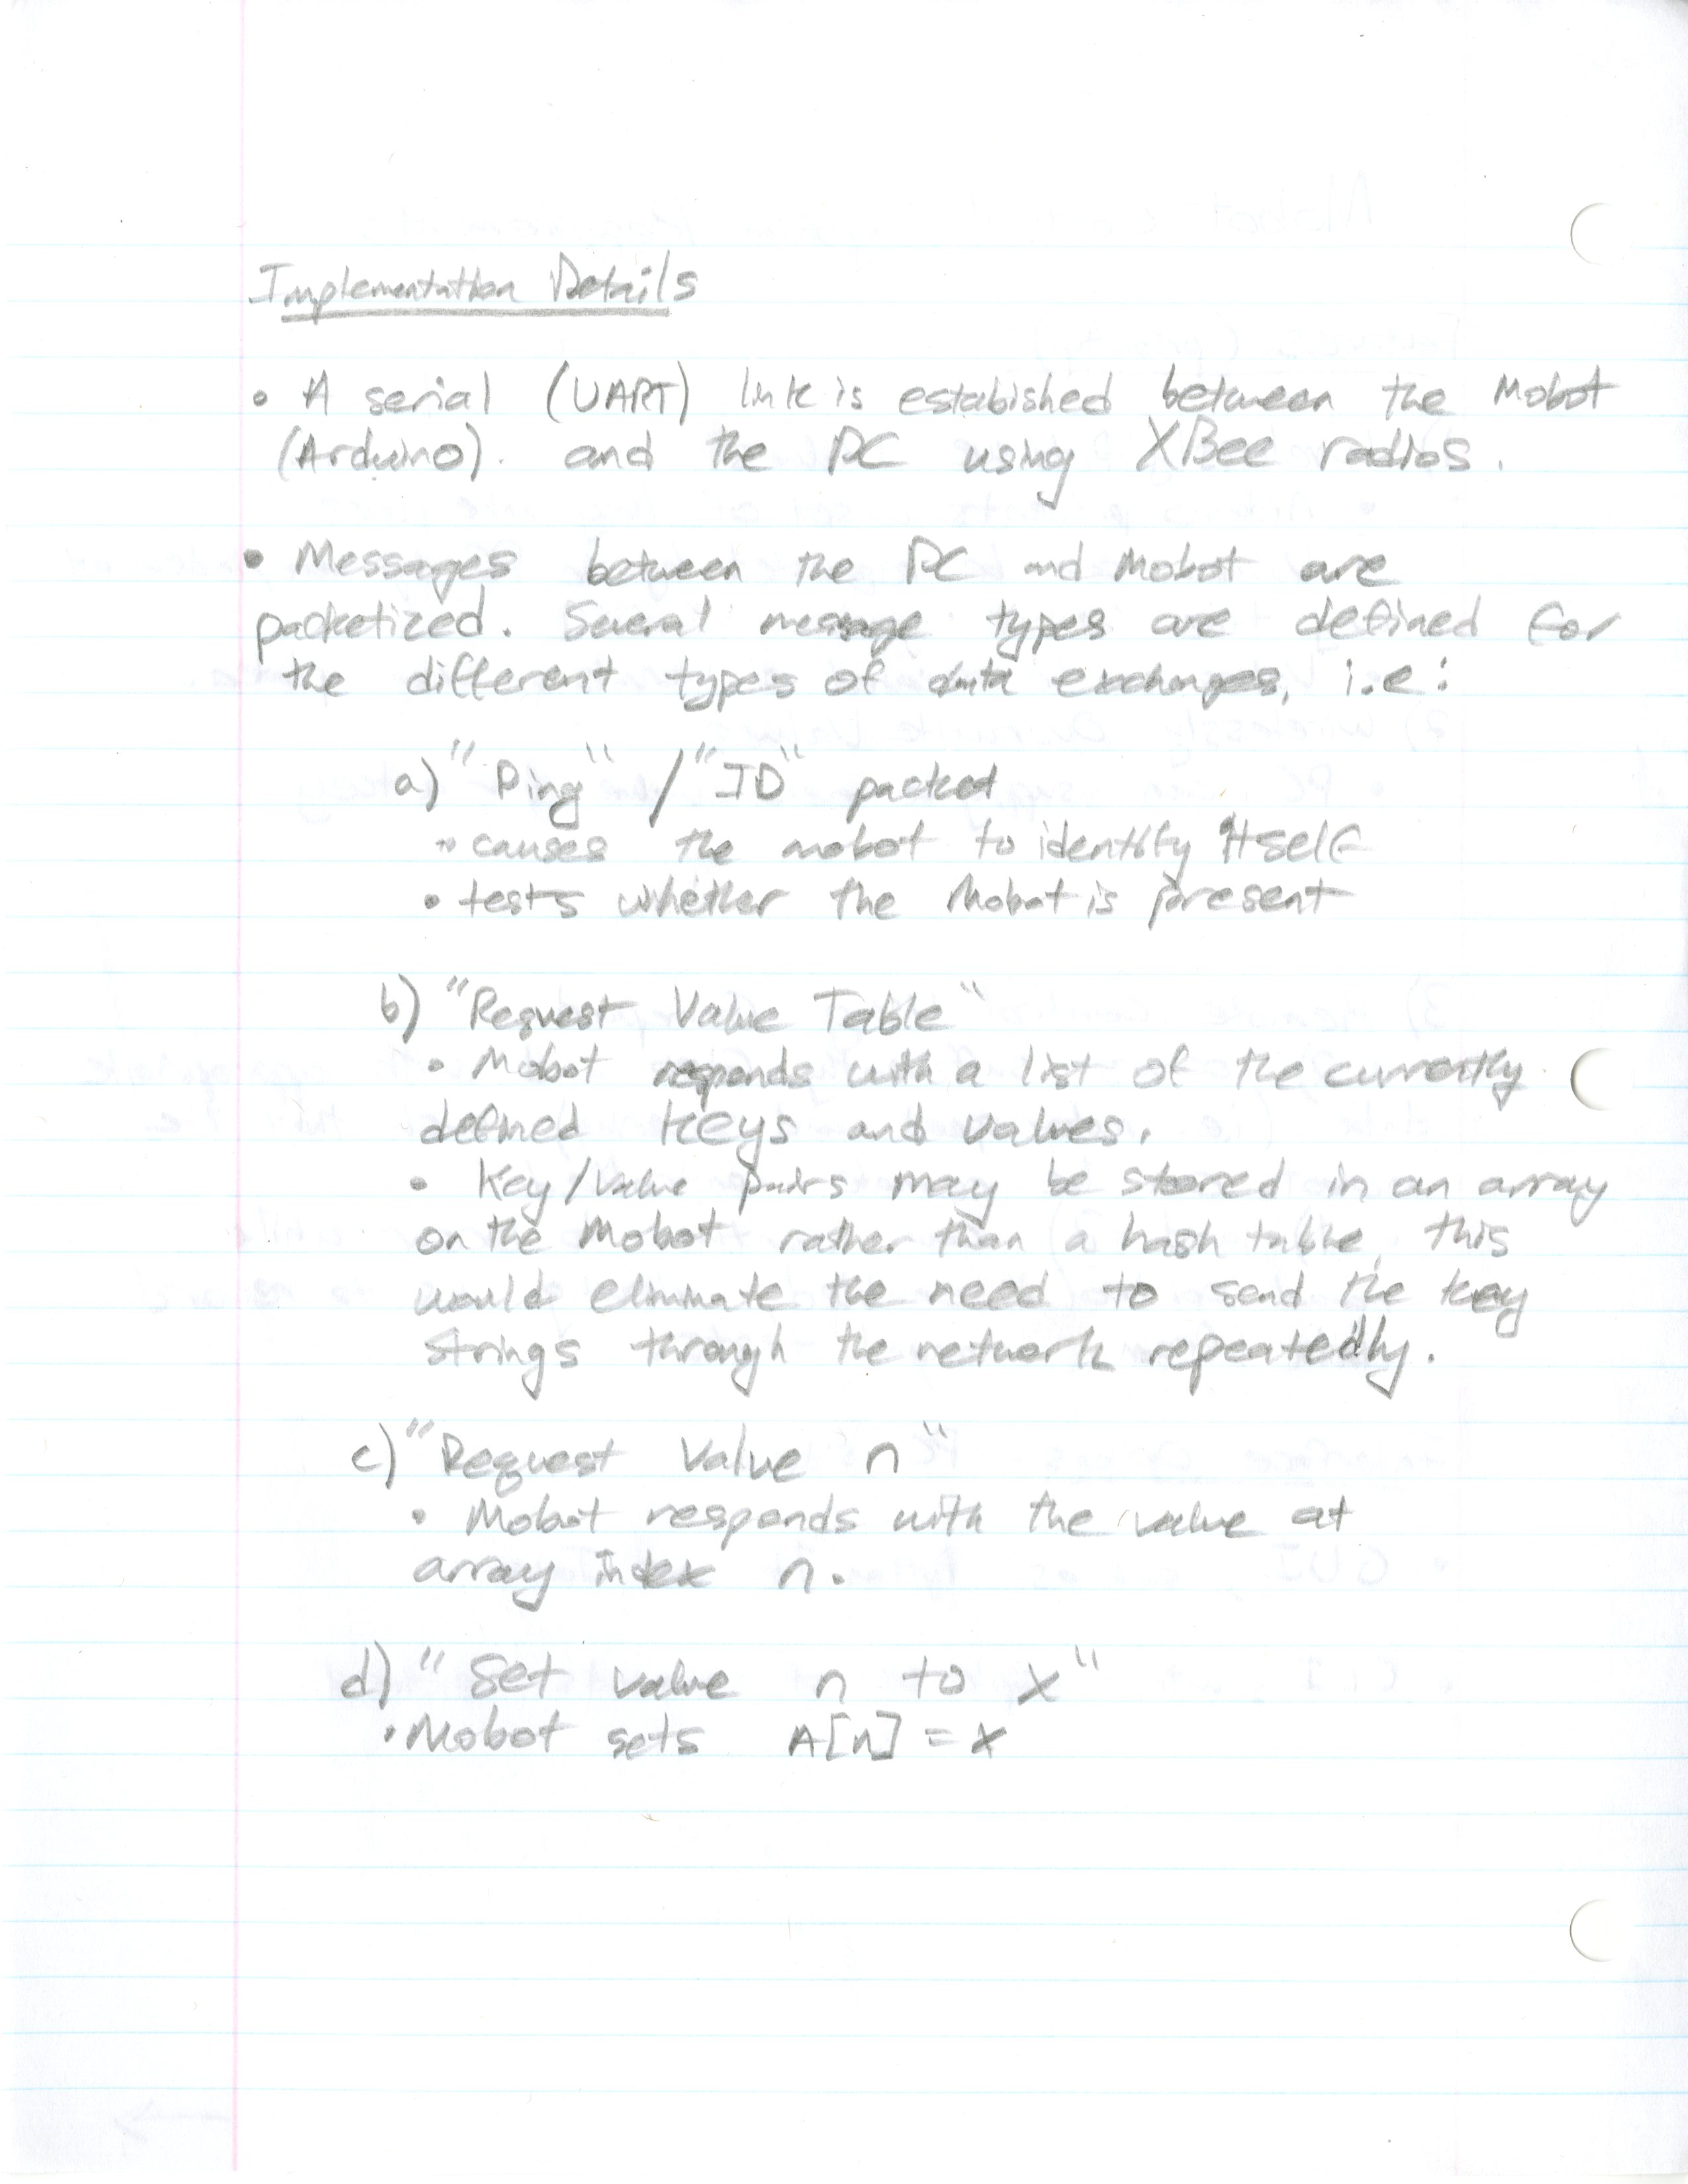 Implementation Details
• A serial (UART) link is estabished between the Mobot
(Arduino). and the PC using XBee radios.
• Messages between the PC and Mobot are
packetized. Several message types are defined for
the different types of data exchanges, i.e:
a) "Ping" / "ID" packet
• causes the mobot to identify itself
• tests whether the Mobot is present
b) "Request Value Table"
• Mobot responds with a list of the currently
defined keys and values.
• Key/Value pairs may be stored in an array
on the Mobot rather than a hash table, this
would eliminate the need to send the key
strings through the network repeatedly.
c) "Request Value n"
• Mobot responds with the value at
array index n.
d) "Set value n to x"
• Mobot sets A[n] = x